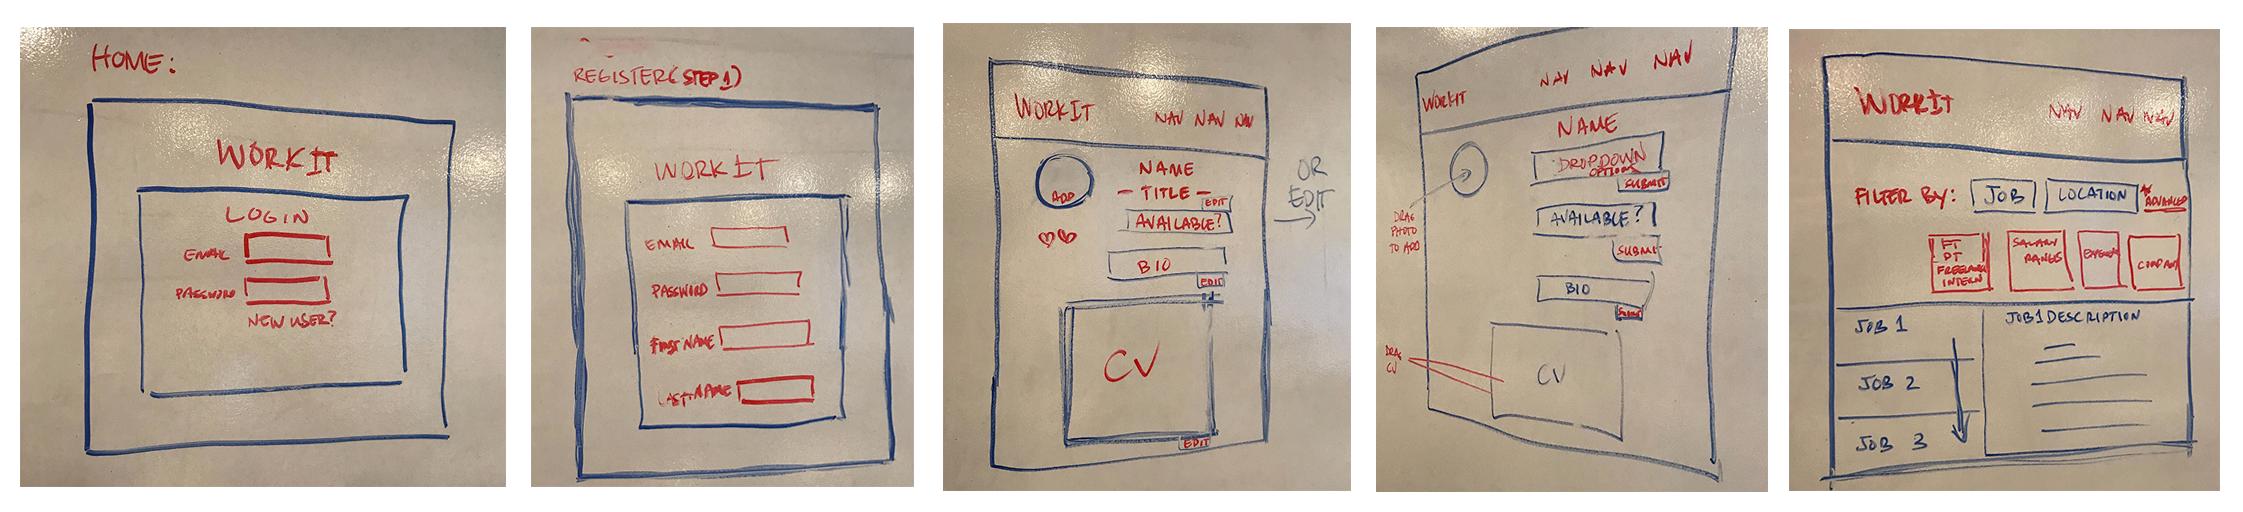 HOME:
WORKIT
LOGIN
EMAIL
PASSWORD
NEW USER?
REGISTER (STEP 1)
WORKIT
EMAIL
PASSWORD
FIRST NAME
LAST NAME
WORKIT NAV NAV NAV
ADD
NAME
- TITLE -
EDIT
AVAILABLE?
BIO
EDIT
CV
EDIT
OR
EDIT
WORKIT NAV NAV NAV
NAME
DROPDOWN
OPTIONS
SUBMIT
AVAILABLE?
SUBMIT
BIO
SUBMIT
DRAG
PHOTO
TO ADD
DRAG
CV
CV
WORKIT NAV NAV NAV
FILTER BY: JOB LOCATION *ADVANCED
FT
PT
FREELANCE
INTERN
SALARY
RANGES
COMPANY
JOB 1
JOB 2
JOB 3
JOB 1 DESCRIPTION